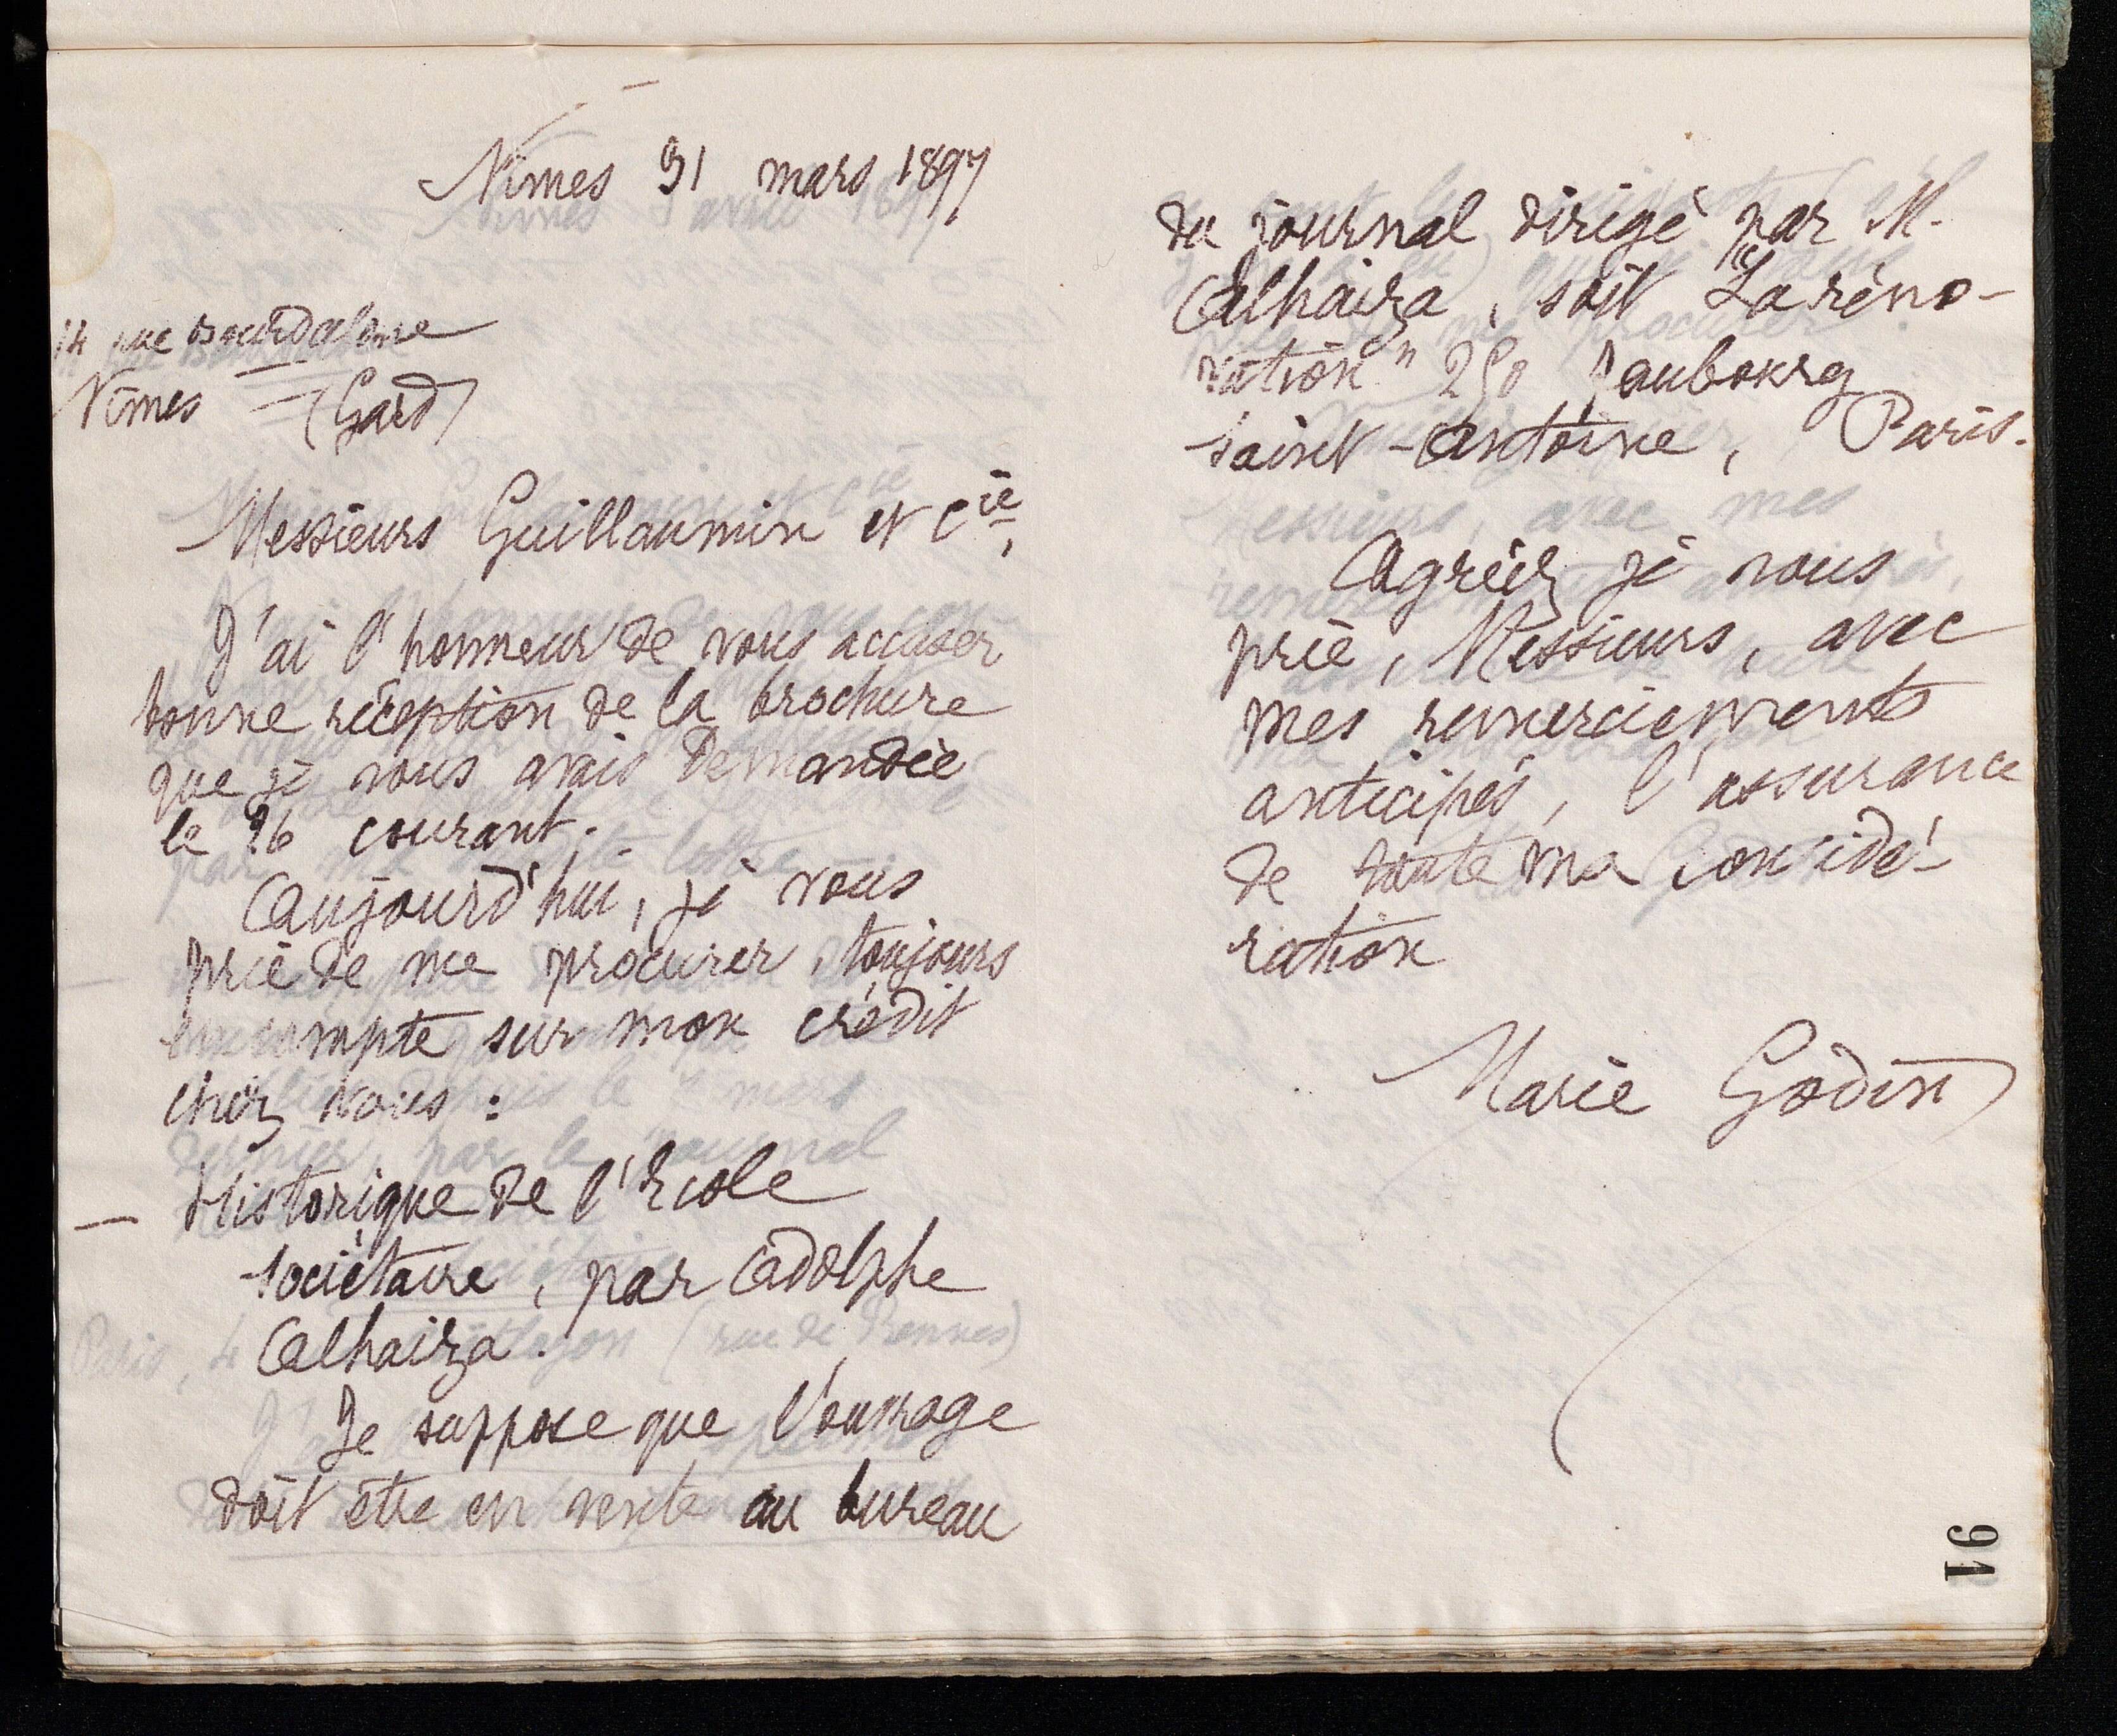 Nîmes 31 mars 1897
14 rue Bourdaloue
Nîmes (Gard)
Messieurs Guillaumin et Cie,
J'ai l'honneur de vous accuser
bonne réception de la brochure
que je vous avais demandée
le 26 courant.
Aujourd'hui, je vous
prie de me procurer, toujours
en compte sur mon crédit
chez vous :
— Historique de l'Ecole
sociétaire, par Adolphe
Alhaiza.
Je suppose que l'ouvrage
doit être en vente au bureau
du journal dirigé par M.
Alhaiza, soit "La réno-
vation" 250 faubourg
saint-Antoine, Paris.
Agréez je vous
prie, Messieurs, avec
mes remerciements
anticipés, l'assurance
de toute ma considé-
ration
Marie Godin
91